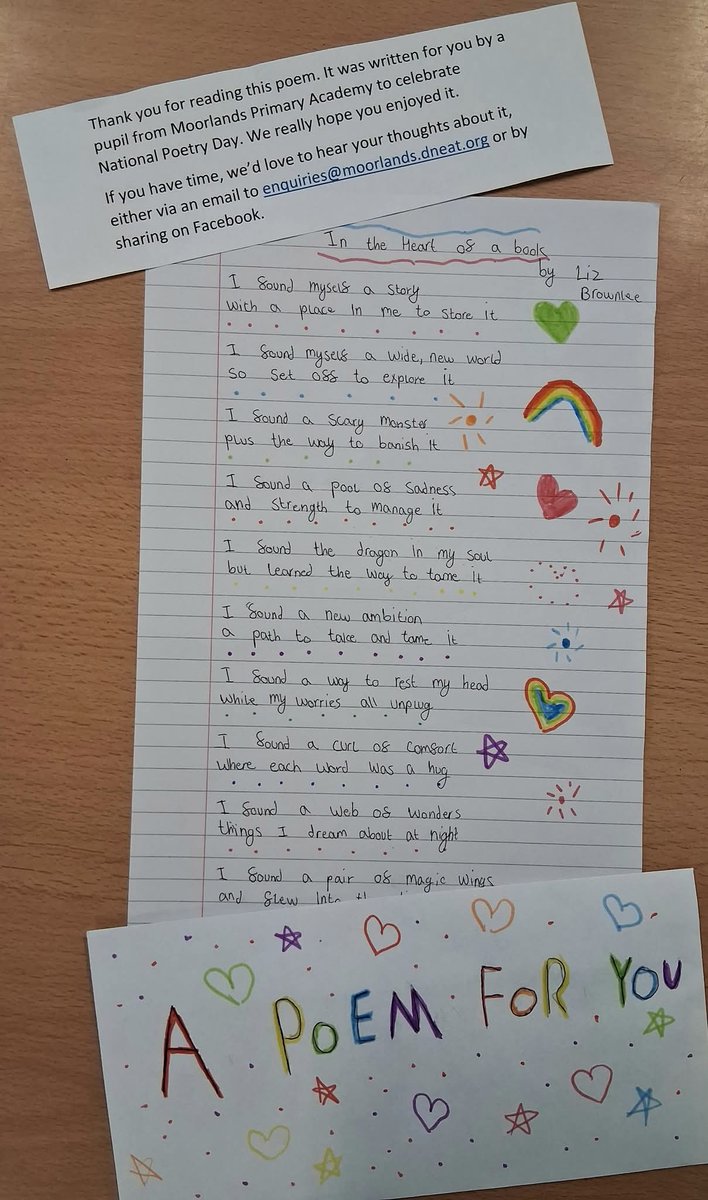 Thank you for reading this poem. It was written for you by a
pupil from Moorlands Primary Academy to celebrate
National Poetry Day. We really hope you enjoyed it.
If you have time, we'd love to hear your thoughts about it,
either via an email to enquiries@moorlands.dneat.org or by
sharing on Facebook.
In the Heart of a book
by Liz
Brownlee
I found myself a story
with a place in me to store it
I found myself a wide, new world
so set off to explore it
I found a scary monster
plus the way to banish it
I found a pool of sadness
and strength to manage it
I found the dragon in my soul
but learned the way to tame it
I found a new ambition
a path to take and tame it
I found a way to rest my head
while my worries all unplug
I found a curl of comfort
where each word was a hug
I found a web of wonders
things I dream about at night
I found a pair of magic wings
and flew into
A POEM FOR YOU